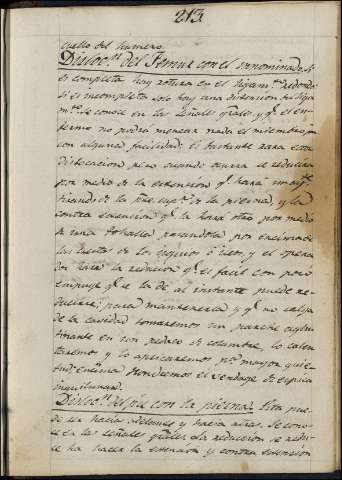 213.
cuello del humero.
Disloc.n del Femur con el ynnominado. Si
es completa hay rotura en el ligam.to redondo
si es incompleta solo hay una distencion del liga
m.to Se conoce en las señales grales y q.e el en-
fermo no podrá menear nada el miembro
con alguna facilidad; es bastante rara esta
dislocacion, pero cuando ocurra se reducira
por medio de la extension q.e hará un ay.te
tirando de la p.te de la pierna, y la
contra extension q.e la hara otro por medio
de una tohalla pasandola por encima de
las de los y el opera
dor hace la reducion q.e es facil con poco
empuge q.e se le dé al instante puede re-
ducirse; para mantenerla y q.e no salga
de la cavidad tomaremos un parche aglu-
tinante en un pedazo de estambre, lo calen
taremos y lo aplicaremos p.a mayor quie-
tud; encima pondremos el vendage de espica
inguilunar.
Disloc.n del pie con la pierna. Esta pue-
de ser hacia adelante y hacia atras. Se cono-
ce en las señales grales, la reducion se redu-
ce ha hacer la estension y contra estension